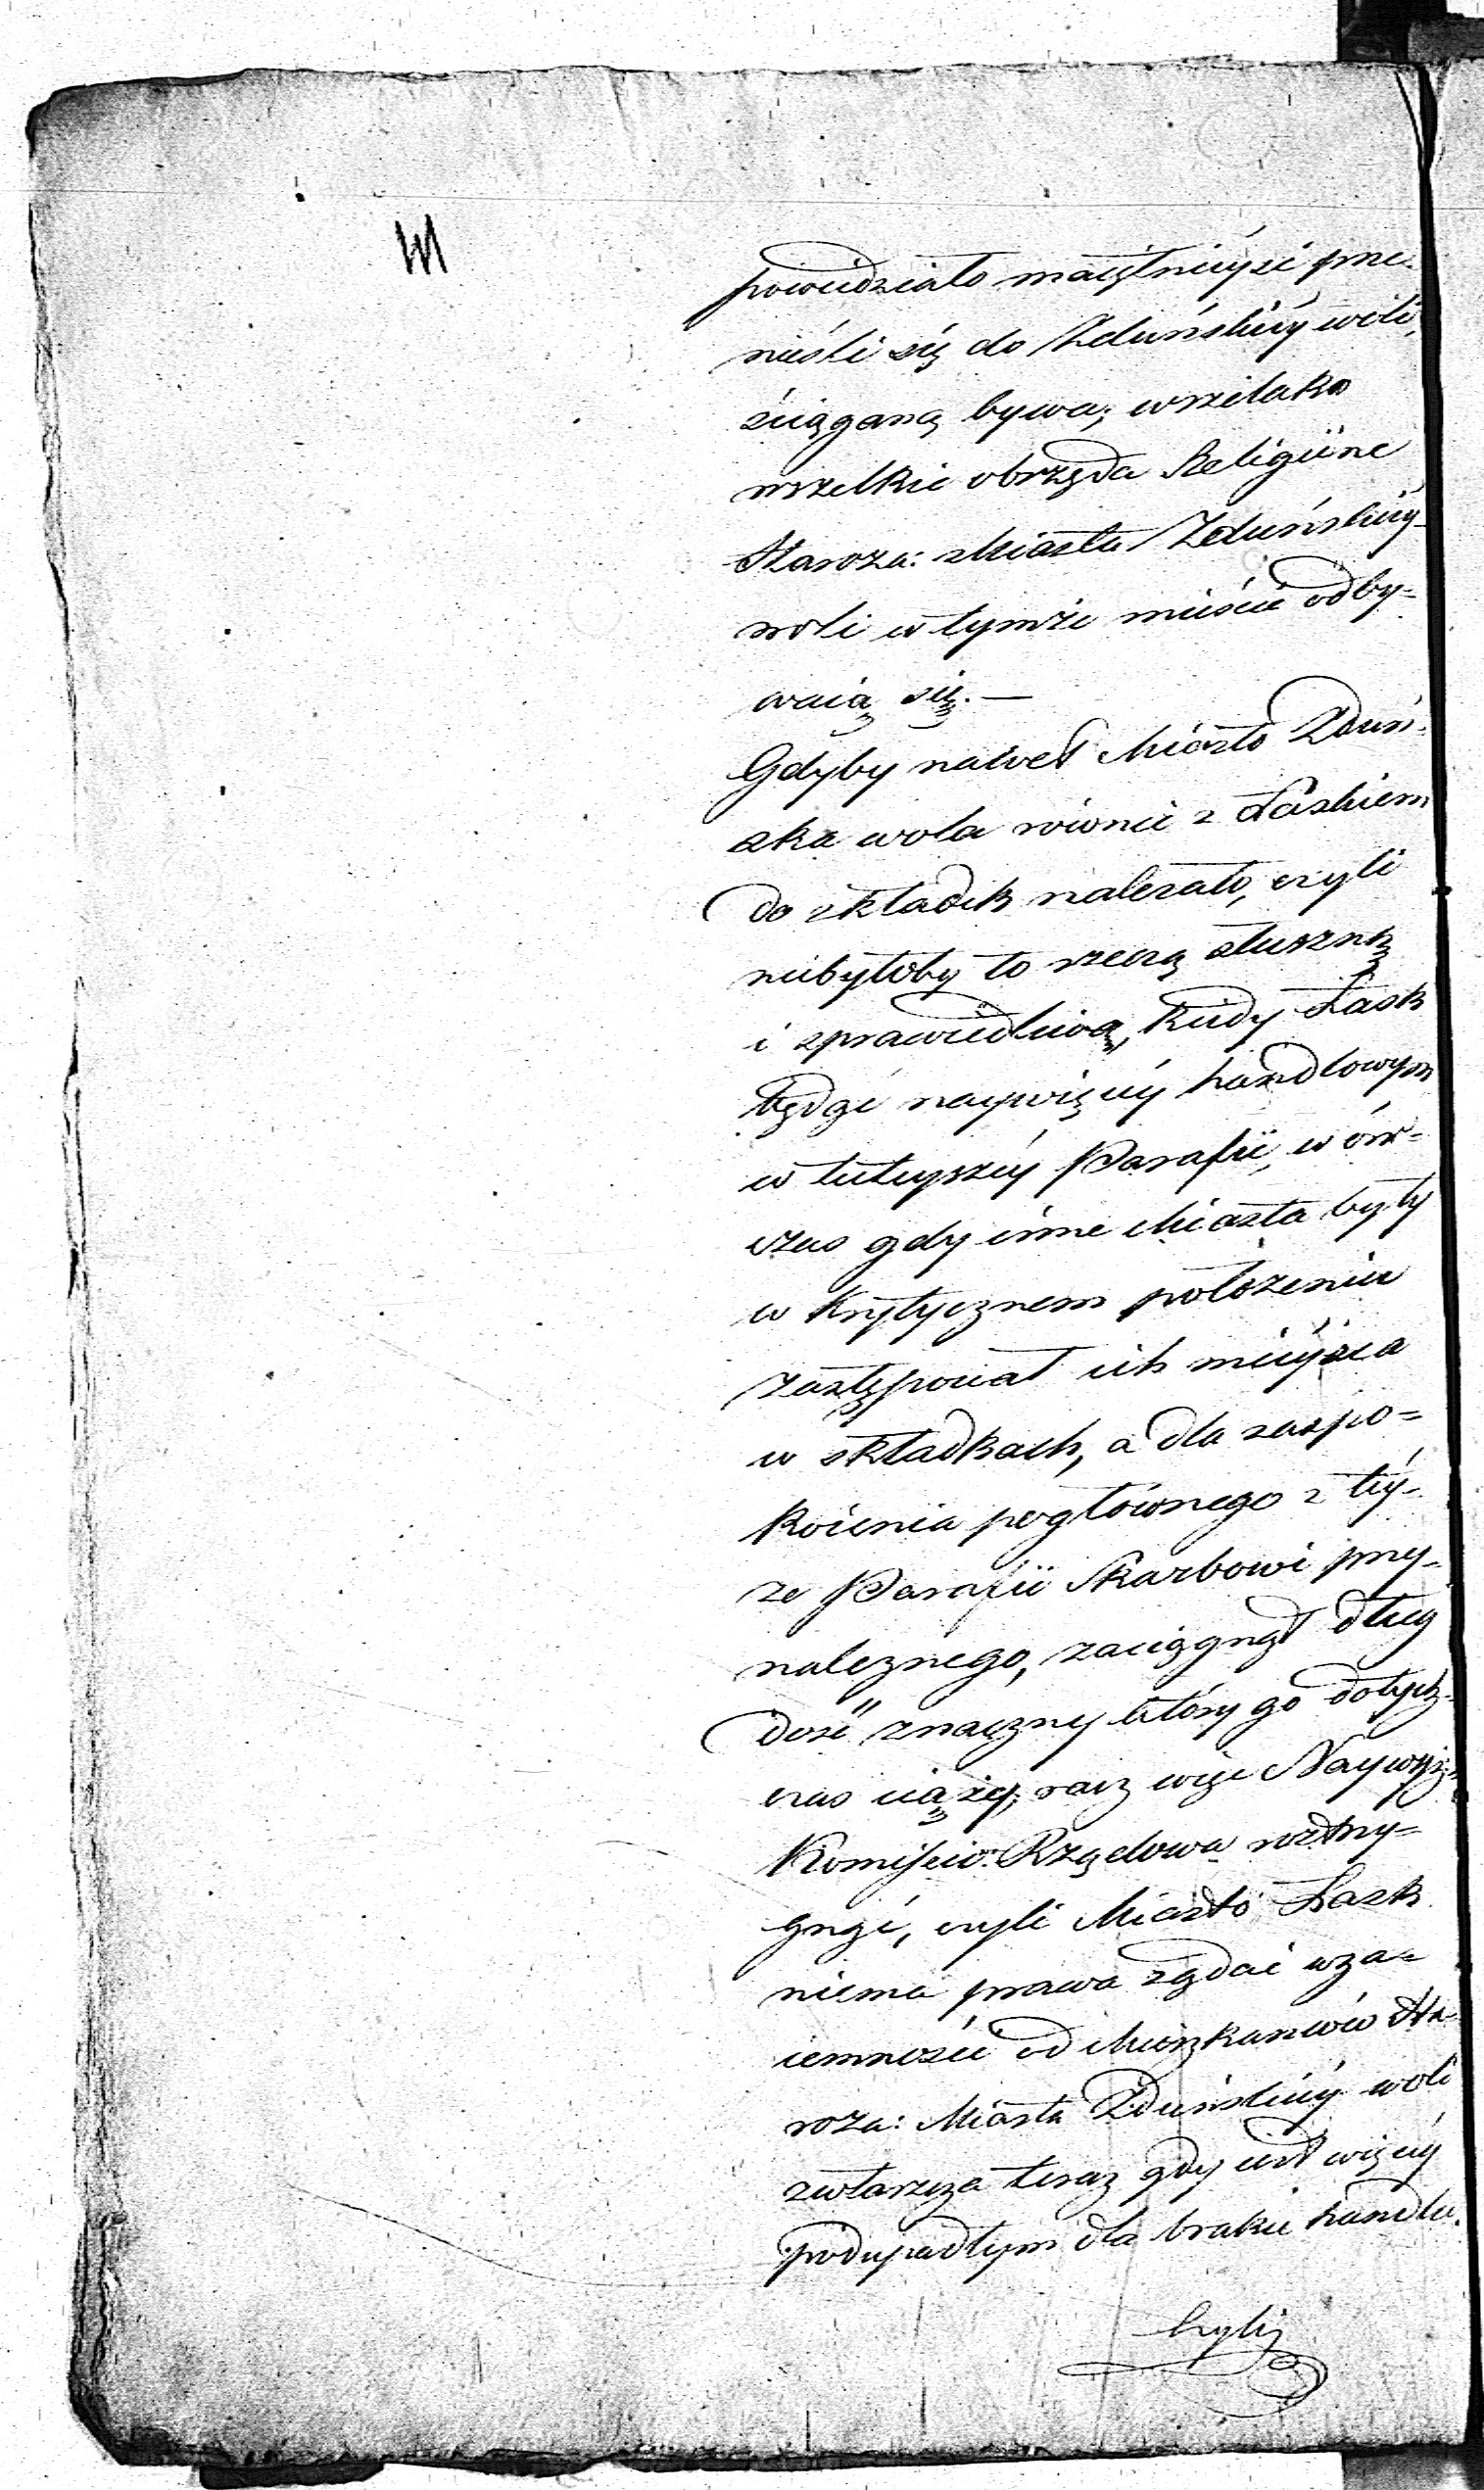 powiedziało maiętnieysi prze-
nieśli się do Zduńskiey woli,
ściąganą bywa; wszelako
wszelkie obrzęda Religiine
Staroza: Miasta Zduńskiey
woli w tymże mieście odby=
waią się.—
Gdyby nawet Miasto Zduń-
ska wola równie z Łaskiem
do składek należało, czyli
niebyłoby to rzeczą słuszną
i sprawiedliwą, kiedy Łask
będąc naywięcey handlowym
w tuteyszey Parafii, w ów=
czas gdy inne Miasta były
w krytycznem położeniu
zastępował ich mieysca
w składkach, a dla zaspo=
koienia pogłównego z tey-
że Parafii Skarbowi przy-
należnego, zaciągnął dług
dość znaczny który go dotych-
czas ciąży; racz więc Naywyż:
Kommissio Rządowa roztrzy=
gnąć, czyli Miasto Łask
niema prawa żądać wza=
iemności od Mieszkańców Sta-
roza: Miasta Zduńskiey woli
zwłaszcza teraz gdy iest więcey
podupadłym dla braku handlu.
Czyliż